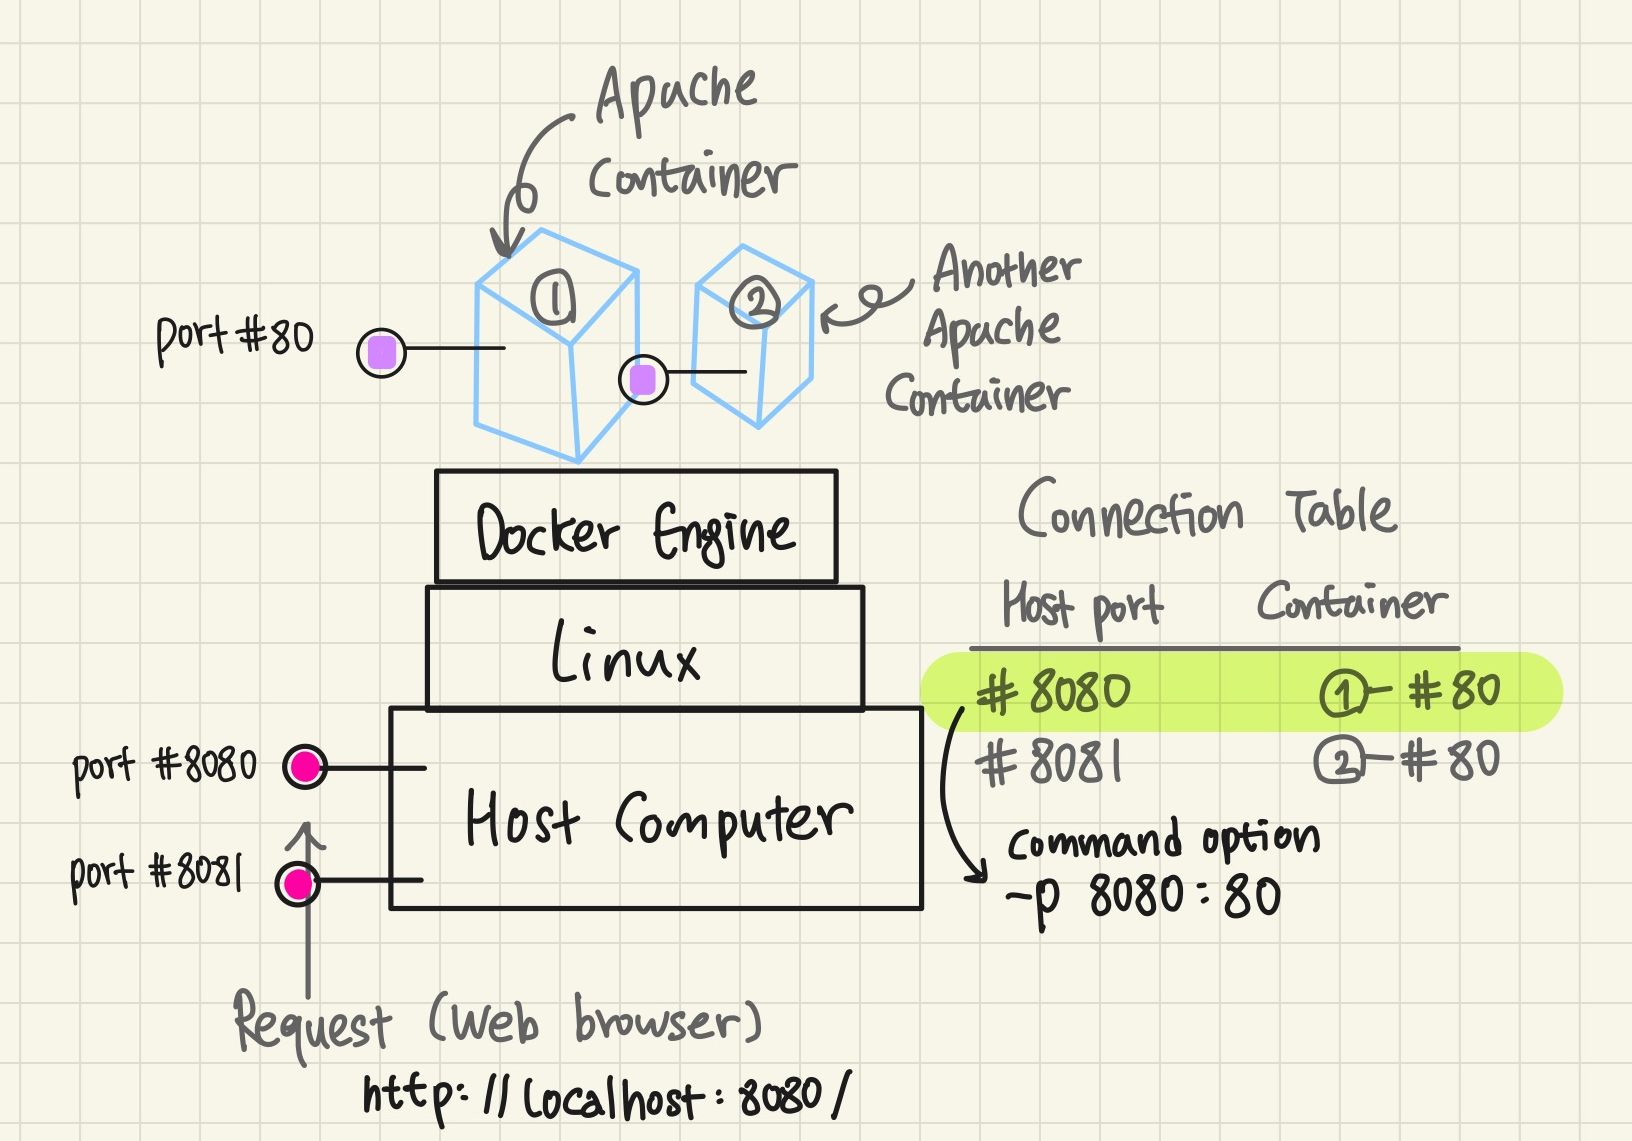 Apache
Container
①
②
Another
Apache
Container
port #80
Docker Engine
Linux
Host Computer
port #8080
port #8081
Request (Web browser)
http://localhost:8080/
Connection Table
Host port Container
#8080 ①-#80
#8081 ②-#80
command option
-p 8080:80